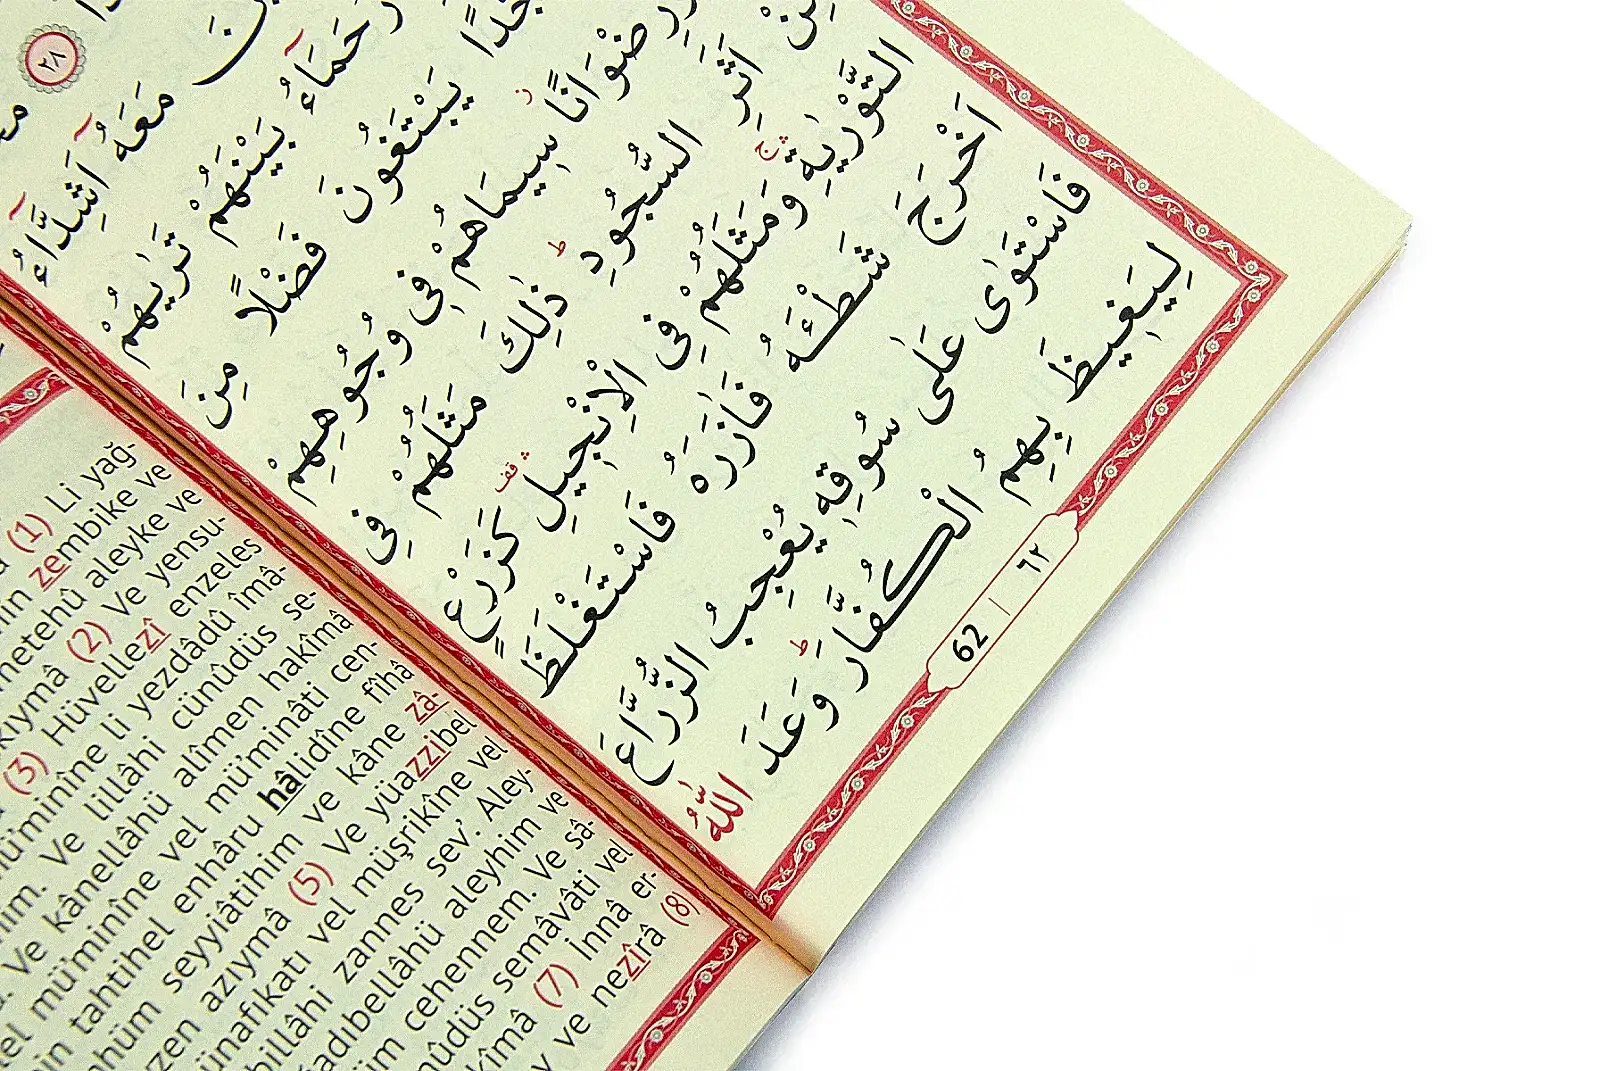 ٢٨
مَعَهُٓ اَشِدَّٓاءُ
رُحَمَٓاءُ بَيْنَهُمْ تَرٰيهُمْ
يَبْتَغُونَ فَضْلًا مِنَ
وَرِضْوَانًا سِيمَاهُمْ فِى وُجُوهِهِمْ
مِنْ اَثَرِ السُّجُودِ ذٰلِكَ مَثَلُهُمْ فِى
التَّوْرٰيةِ وَمَثَلُهُمْ فِى الْاِنْجِيلِ كَزَرْعٍ
اَخْرَجَ شَطْـَٔهُ فَاٰزَرَهُ فَاسْتَغْلَظَ
فَاسْتَوٰى عَلٰى سُوقِهِ يُعْجِبُ الزُّرَّاعَ
لِيَغِيظَ بِهِمُ الْكُفَّارَ وَعَدَ اللّٰهُ
62 | ٦٢
(1) Li yağ-
zembike ve
aleyke ve
(2) Ve yensu-
(3) Hüvellezî enzeles
li yezdâdû îmâ-
Ve lillâhi cünûdüs se-
Ve kânellâhü alîmen hakîmâ
mü'minîne vel mü'minâti cen-
tahtihel enhâru hâlidîne fîhâ
seyyiâtihim ve kâne zâ-
azıymâ (5) Ve yüazzibel
vel müşrikîne vel
zannes sev'. Aley-
aleyhim ve
cehennem. Ve sâ-
semâvâti vel
(7) İnnâ er-
ve nezîrâ (8)